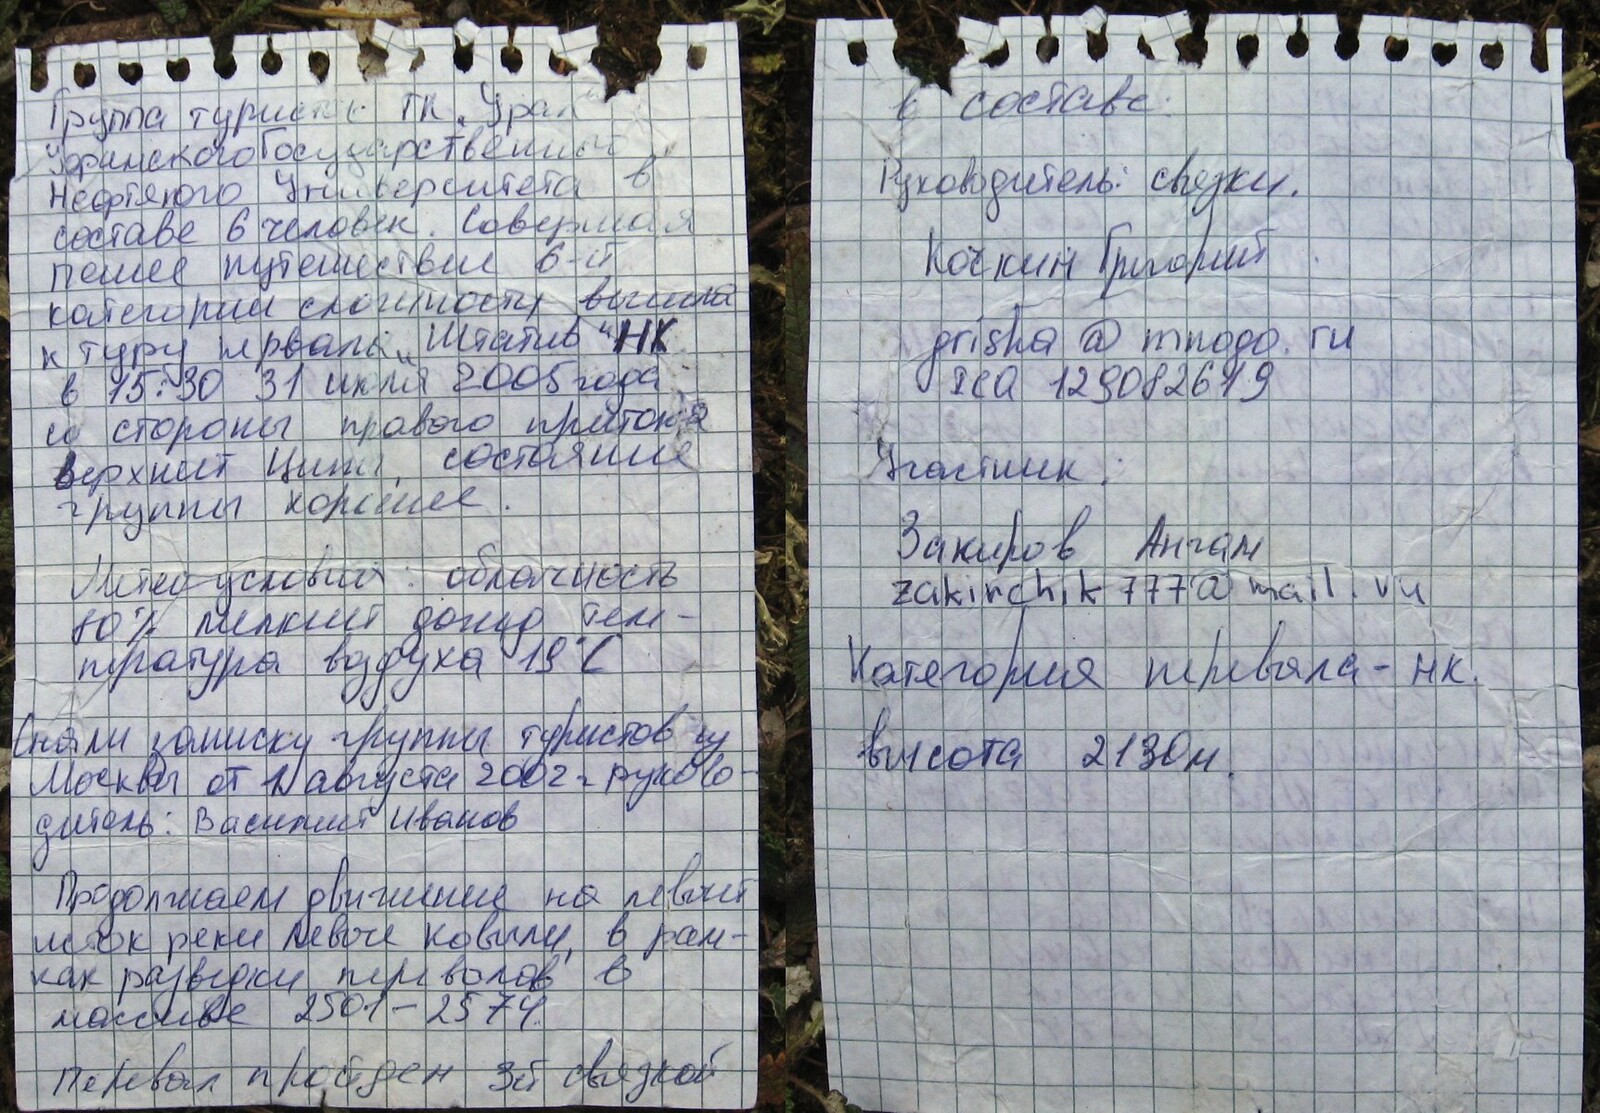 Группа туристов ТК "Урал"
Уфимского Государственного
Нефтяного Университета в
составе 6 человек. Совершая
пешее путешествие 6-й
категории сложности вышла
к туру первала "Штатив" НК
в 15:30 31 июля 2005 года
со стороны правого притока
верхний Ципы, состояние
группы хорошее.
Метеоусловия: облачность
80% мелкий дождь тем-
пратура воздуха 19°С
Сняли записку группы туристов из
Москвы от 1 августа 2002 г руково-
дитель: Василий Иванов
Продолжаем движение на левый
исток реки Левые Ковыли, в рам-
ках разведки перевалов в
массиве 2501-2574.
Перевал пройден 3й связкой
в составе:
Руководитель: связки.
Кочкин Григорий
grisha@mnogo.ru
ICQ 129082679
Участник:
Закиров Ангам
zakirchik777@mail.ru
Категория перевала - нк.
высота 2130м.